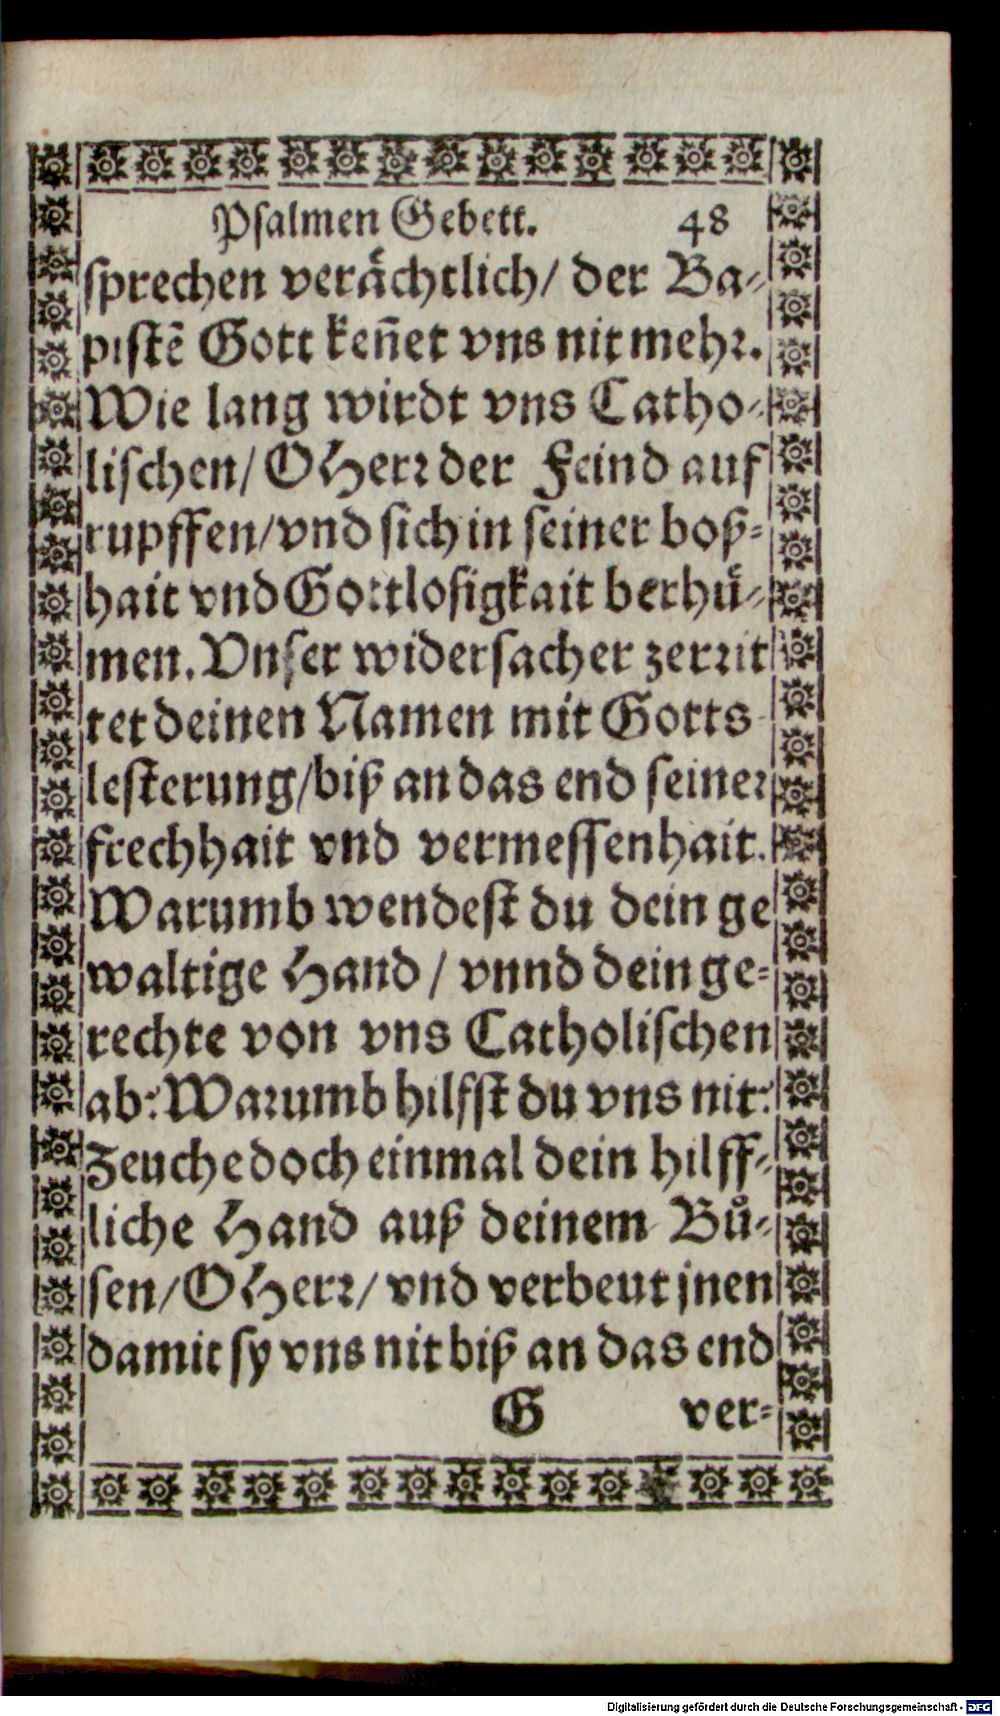 Psalmen Gebett. 48
sprechen verächtlich/ der Ba-
pistē Gott keñet vns nit mehr.
Wie lang wirdt vns Catho-
lischen/ O Herr der Feind auf
rupffen/ vnd sich in seiner boß-
hait vnd Gottlosigkait berhů-
men. Vnser widersacher zerrit
tet deinen Namen mit Gotts
lesterung/ biß an das end seiner
frechhait vnd vermessenhait.
Warumb wendest du dein ge
waltige Hand / vnnd dein ge-
rechte von vns Catholischen
ab: Warumb hilfst du vns nit:
Zeuche doch einmal dein hilff-
liche Hand auß deinem Bů-
sen/ O Herr/ vnd verbeut jnen
damit sy vns nit biß an das end
G ver-
Digitalisierung gefördert durch die Deutsche Forschungsgemeinschaft - DFG